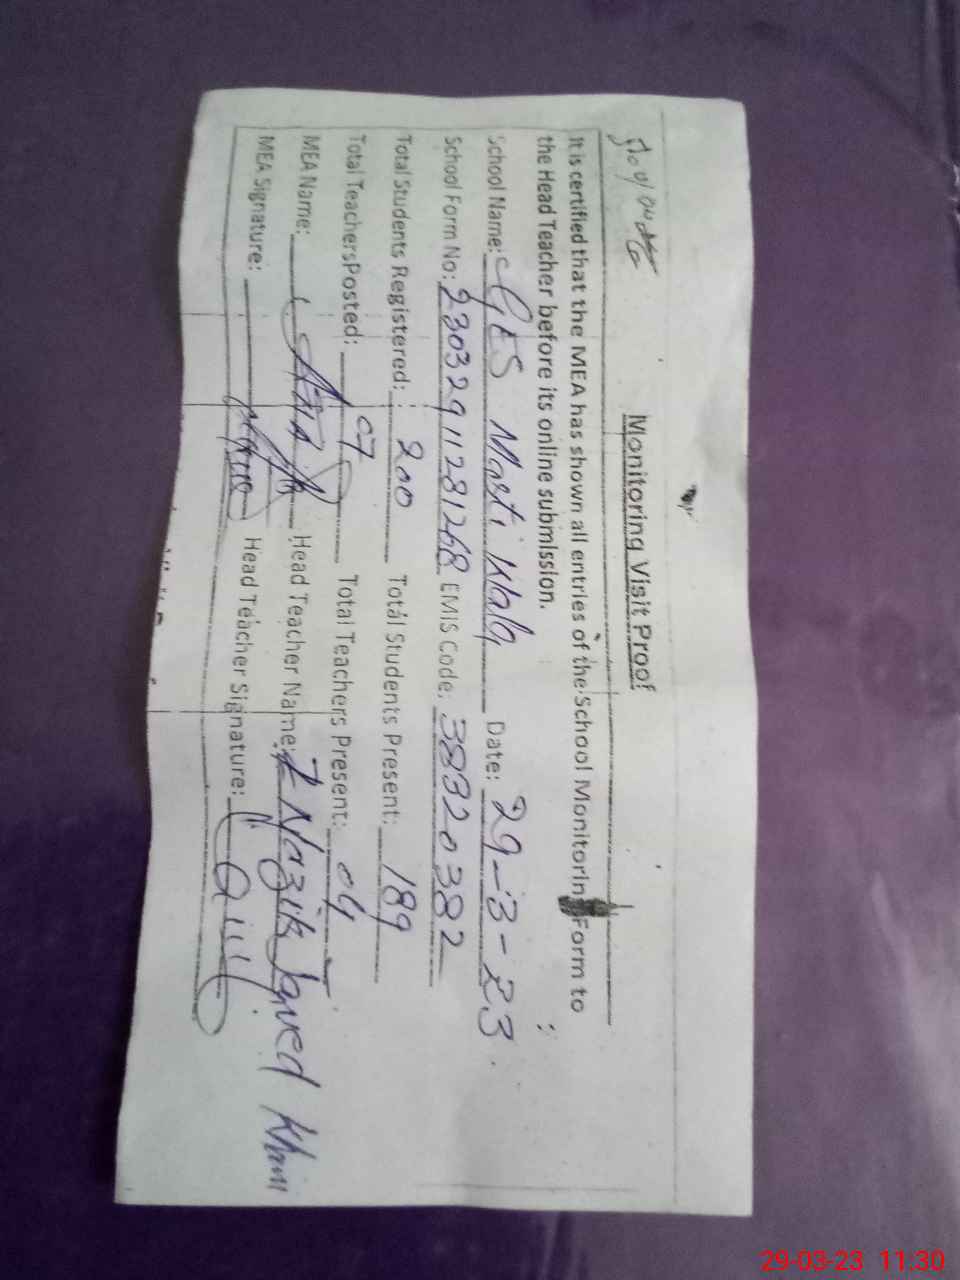 Monitoring Visit Proof
It is certified that the MEA has shown all entries of the School Monitorin Form to
the Head Teacher before its online submission.
School Name: GES Masti Klala Date: 29-3-23
School Form No: 230329112812 68 EMIS Code: 38320382
Total Students Registered: 200 Total Students Present: 189
Total Teachers Posted: 07 Total Teachers Present: 04
MEA Name: Head Teacher Name: Nazik Javed Khan
MEA Signature: Head Teacher Signature:
29-03-23 11:30